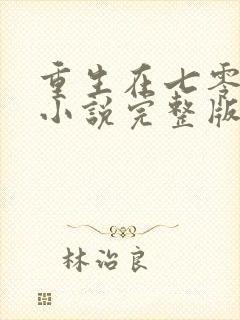 重生在七零
小説完整版
林治良